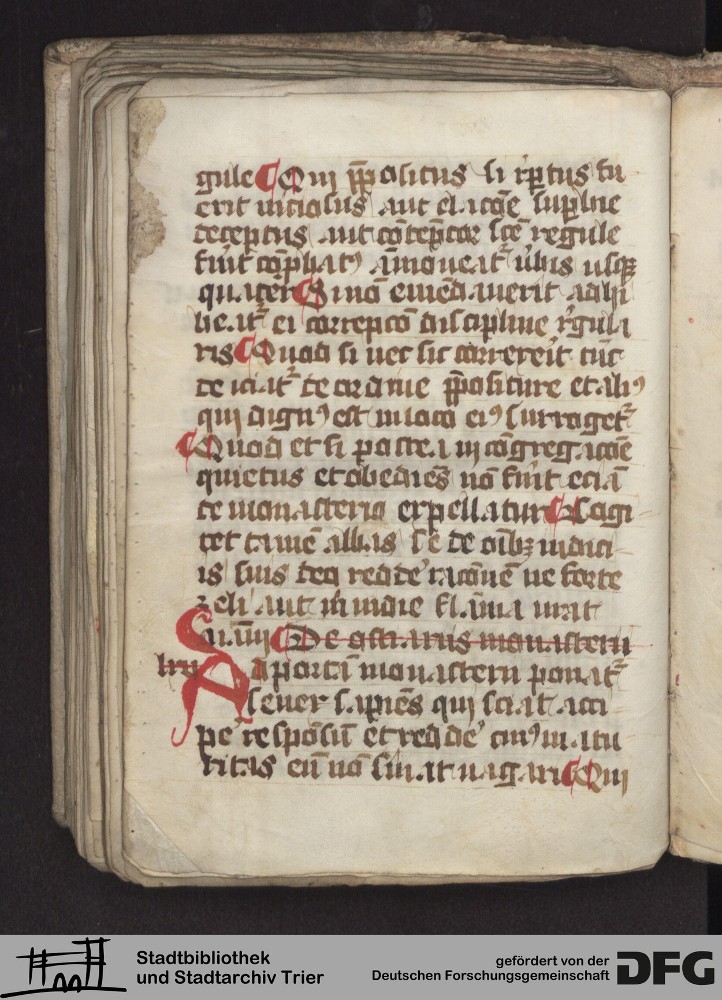 gule Qui p̄positus si rep̄tus fu
erit uiciosus aut elac̄oe supbie
deceptus aut cōtēptor sc̄e regule
fuīt cōp̄bat⁹ āmoneat᷑ ūbis usqꝫ
quater Si nō emēdauerit adhi
beat᷑ ei correptō discipline r̓gula
ris Quod si nec sic correxerīt tūc
deiciat᷑ de ordine p̄positure et ali⁹
qui dign⁹ est in loco ei⁹ surroget᷑
Quod et si postea in cōgregac̄oe
quietus et obediēs nō fuīt eciā
de monasterio expellatur Cogi
tet tamē abbas se de oībꝫ iudici
is suis deo redde̓ rac̄onē ne forte
zeli aut inuidie flāma urat
aīam De ostiariis monasterii
lxvi Ad portā monasterii ponat᷑
senex sapiēs qui sciat acci
pe̓ respōsū et redde̓ cui⁹ matu
ritas eū nō sinat uagari Qui
Stadtbibliothek
und Stadtarchiv Trier
gefördert von der
Deutschen Forschungsgemeinschaft
DFG